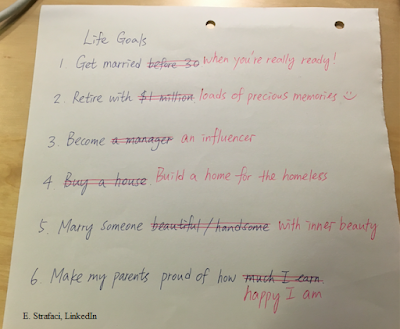 Life Goals
1 Get married before 30 when you're really ready!
2. Retire with $1 million loads of precious memories
3. Become a manager an influencer
4 Buy a house. Build a home for the homeless
5 Marry someone beautiful / handsome with inner beauty
6. Make my parents proud of how much I earn
happy I am
E. Strafaci, LinkedIn